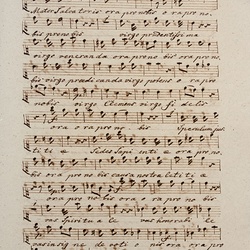 Mater Salvatoris ora pro nobis ora pro no
bis pro no bis virgo prudentissima
virgo veneranda ora pro no bis ora pro no
bis virgo predicanda virgo potens o ra pro
nobis virgo Clemens virgo fi de lis
ora o ra pro no bis Speculum jus
ti ti e Sedes Sapi enti e ora pro no
bis ora pro no bis causa nostra leti ti e
ora pro no bis ora pro no bis
vas Spiritu a le vas honorabi le
vas insig ne de voti o nis ora ora pro